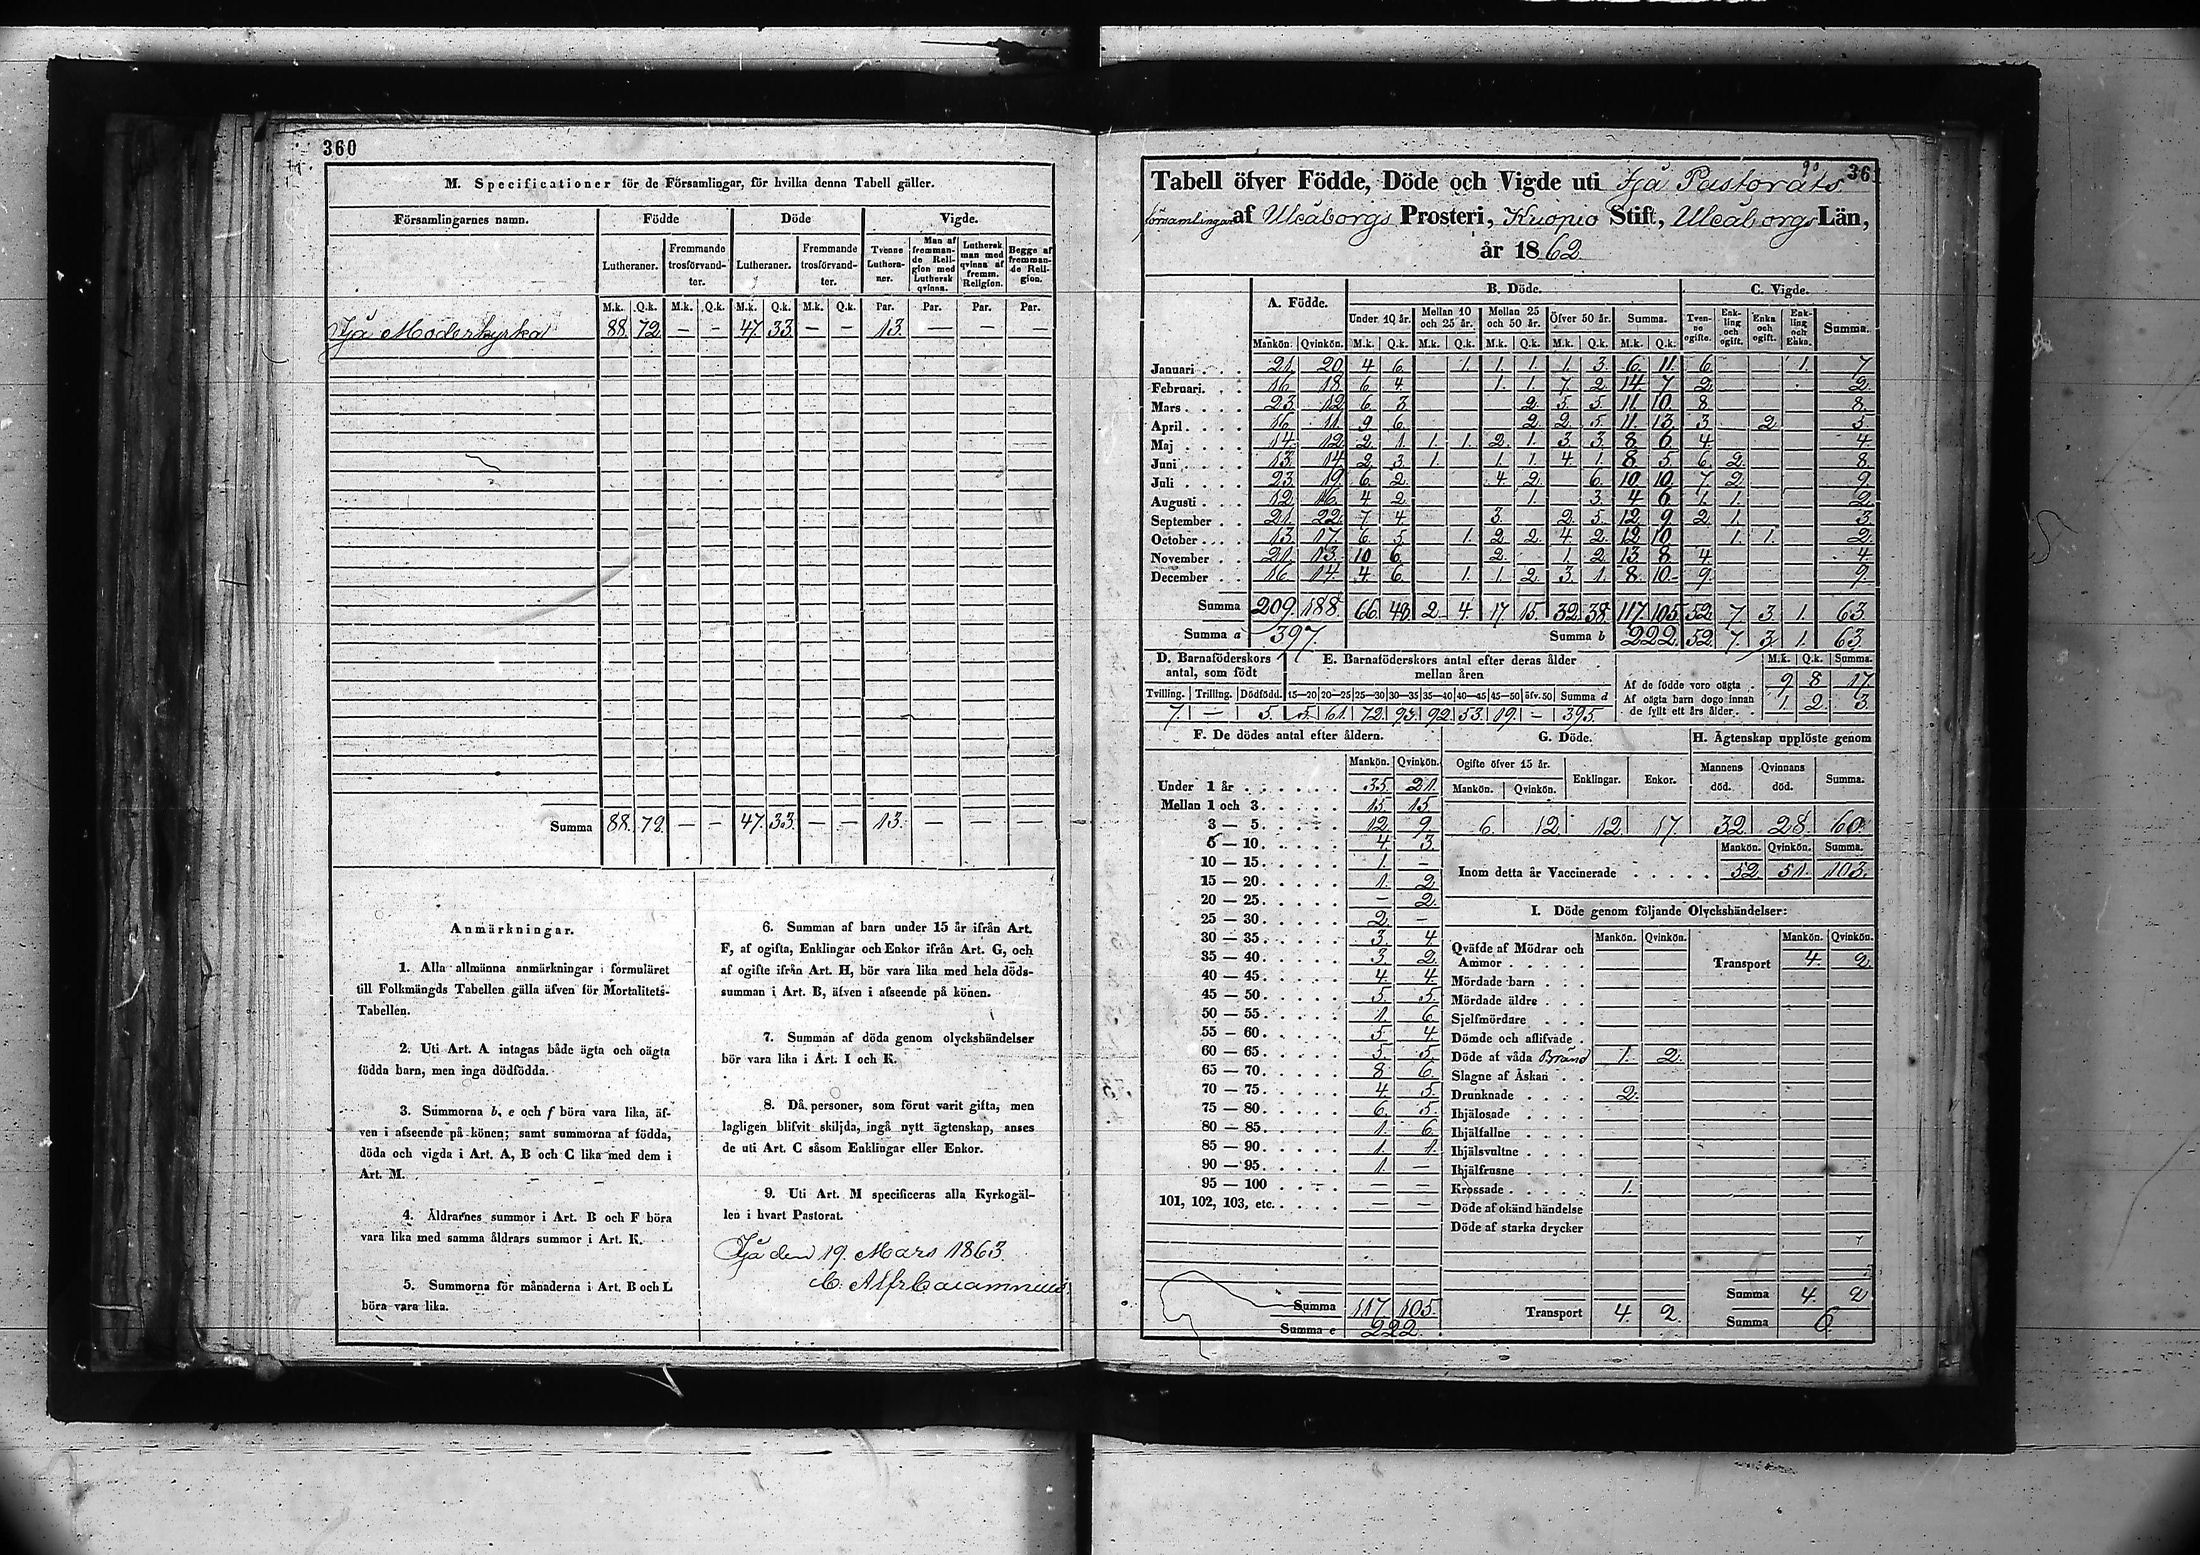 360
M. Specificationer för de Församlingar, för hvilka denna Tabell gäller.
Församlingarnes namn. Födde Döde Vigde.
Lutheraner. Fremmande trosförvandter. Lutheraner. Fremmande trosförvandter. Tvenne Lutheraner. Man af fremmande Religion med Luthersk qvinna. Luthersk man med qvinna af fremm. Religion. Begge af fremmande Religion.
M.k. Q.k. M.k. Q.k. M.k. Q.k. M.k. Q.k. Par. Par. Par. Par.
Ijå Moderkyrka 88 72 — — 47 33 — — 13. — — —
Summa 88. 72. — — 47. 33. — — 13. — — —
Anmärkningar.
1. Alla allmänna anmärkningar i formuläret
till Folkmängds Tabellen gälla äfven för Mortalitets-
Tabellen.
2. Uti Art. A intagas både ägta och oägta
födda barn, men inga dödfödda.
3. Summorna b, e och f böra vara lika, äf-
ven i afseende på könen; samt summorna af födda,
döda och vigda i Art. A, B och C lika med dem i
Art. M.
4. Åldrarnes summor i Art. B och F böra
vara lika med samma åldrars summor i Art. K.
5. Summorna för månaderna i Art. B och L
böra vara lika.
6. Summan af barn under 15 år ifrån Art.
F, af ogifta, Enklingar och Enkor ifrån Art. G, och
af ogifte ifrån Art. H, bör vara lika med hela döds-
summan i Art. B, äfven i afseende på könen.
7. Summan af döda genom olyckshändelser
bör vara lika i Art. I och K.
8. Då personer, som förut varit gifta, men
lagligen blifvit skiljda, ingå nytt ägtenskap, anses
de uti Art. C såsom Enklingar eller Enkor.
9. Uti Art. M specificeras alla Kyrkogäl-
len i hvart Pastorat.
Ijå den 19. Mars 1863
361
Tabell öfver Födde, Döde och Vigde uti Ijå Pastorats
församlingar af Uleåborgs Prosteri, Kuopio Stift, Uleåborgs Län,
år 1862
A. Födde. B. Döde. C. Vigde.
Under 10 år. Mellan 10 och 25 år. Mellan 25 och 50 år. Öfver 50 år. Summa. Tvenne ogifte. Enkling och ogift. Enka och ogift. Enkling och Enka. Summa.
Mankön. Qvinkön. M.k. Q.k. M.k. Q.k. M.k. Q.k. M.k. Q.k. M.k. Q.k.
Januari 21. 20. 4 6 1. 1. 1. 1. 3. 6. 11. 6 1. 7.
Februari. 16 18 6 4 1. 1. 7. 2 14 7 2 2.
Mars 23 12 6 3 2 5 5 11. 10. 8 8.
April 16 11. 9 6 2 2. 5 11 13 3 2 5
Maj 14. 12 2 1. 1. 1. 2 1. 3 3 8 6 4. 4.
Juni 13. 14 2 3. 1. 1. 1. 4. 1. 8 5 6 2. 8.
Juli 23. 19 6 2 4 2 6. 10 10 7 2 9.
Augusti 12 16. 4 2 1. 3. 4 6 1. 1. 2
September 21. 22. 7 4 3. 2 5 12 9 2 1. 3.
October 13 17. 6 5 1. 2 2 4 2 12 10 1. 1. 2
November 21. 13. 10 6 2 1. 2 13 8 4 4.
December 16 14. 4 6. 1. 1. 2. 3 1. 8. 10 9. 9.
Summa 209. 188. 66. 48. 2. 4. 17. 15. 32. 38. 117. 105. 52 7. 3. 1. 63.
Summa a 397. Summa b 222. 52. 7. 3. 1. 63.
D. Barnaföderskors antal, som födt
E. Barnaföderskors antal efter deras ålder mellan åren
Tvilling. Trilling. Dödfödd. 15—20 20—25 25—30 30—35 35—40 40—45 45—50 öfv. 50 Summa d
7. — 5. 5. 61. 72. 93. 92. 53. 19. — 395.
M.k. Q.k. Summa.
Af de födde voro oägta 9 8 17
Af oägta barn dogo innan de fyllt ett års ålder 1. 2. 3.
F. De dödes antal efter åldern.
Mankön. Qvinkön.
Under 1 år 35. 21.
Mellan 1 och 3 15 15
3 — 5 12. 9.
5 — 10 4. 3.
10 — 15 1. —
15 — 20 1. 2
20 — 25 — 2.
25 — 30 2. —
30 — 35 3. 4
35 — 40 3. 2.
40 — 45 4 4.
45 — 50 5. 5.
50 — 55 1. 6
55 — 60 5 4.
60 — 65 5. 5.
65 — 70 8 6.
70 — 75 4 5.
75 — 80 6. 5.
80 — 85 1. 6
85 — 90 1. 1.
90 — 95 1. —
95 — 100 — —
101, 102, 103, etc. — —
Summa 117 105.
Summa e 222.
G. Döde.
Ogifte öfver 15 år. Enklingar. Enkor.
Mankön. Qvinkön.
6. 12 12. 17.
H. Ägtenskap upplöste genom
Mannens död. Qvinnans död. Summa.
32 28. 60.
Mankön. Qvinkön. Summa.
Inom detta år Vaccinerade 52 51. 103.
I. Döde genom följande Olyckshändelser:
Mankön. Qvinkön. Mankön. Qvinkön.
Qväfde af Mödrar och Ammor
Transport 4. 2.
Mördade barn
Mördade äldre
Sjelfmördare
Dömde och aflifvade
Döde af våda Bränd 1. 2.
Slagne af Åskan
Drunknade 2.
Ihjälosade
Ihjälfallne
Ihjälsvultne
Ihjälfrusne
Krossade 1.
Döde af okänd händelse
Döde af starka drycker
Transport 4. 2.
Summa 4. 2
Summa 6.